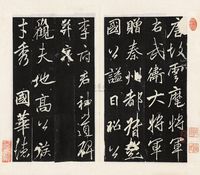 唐故雲麾將軍
右武衛大將軍
贈秦州都督
國公謚曰昭公
李府君神道碑
并序
觀夫地高公族
才秀國華德